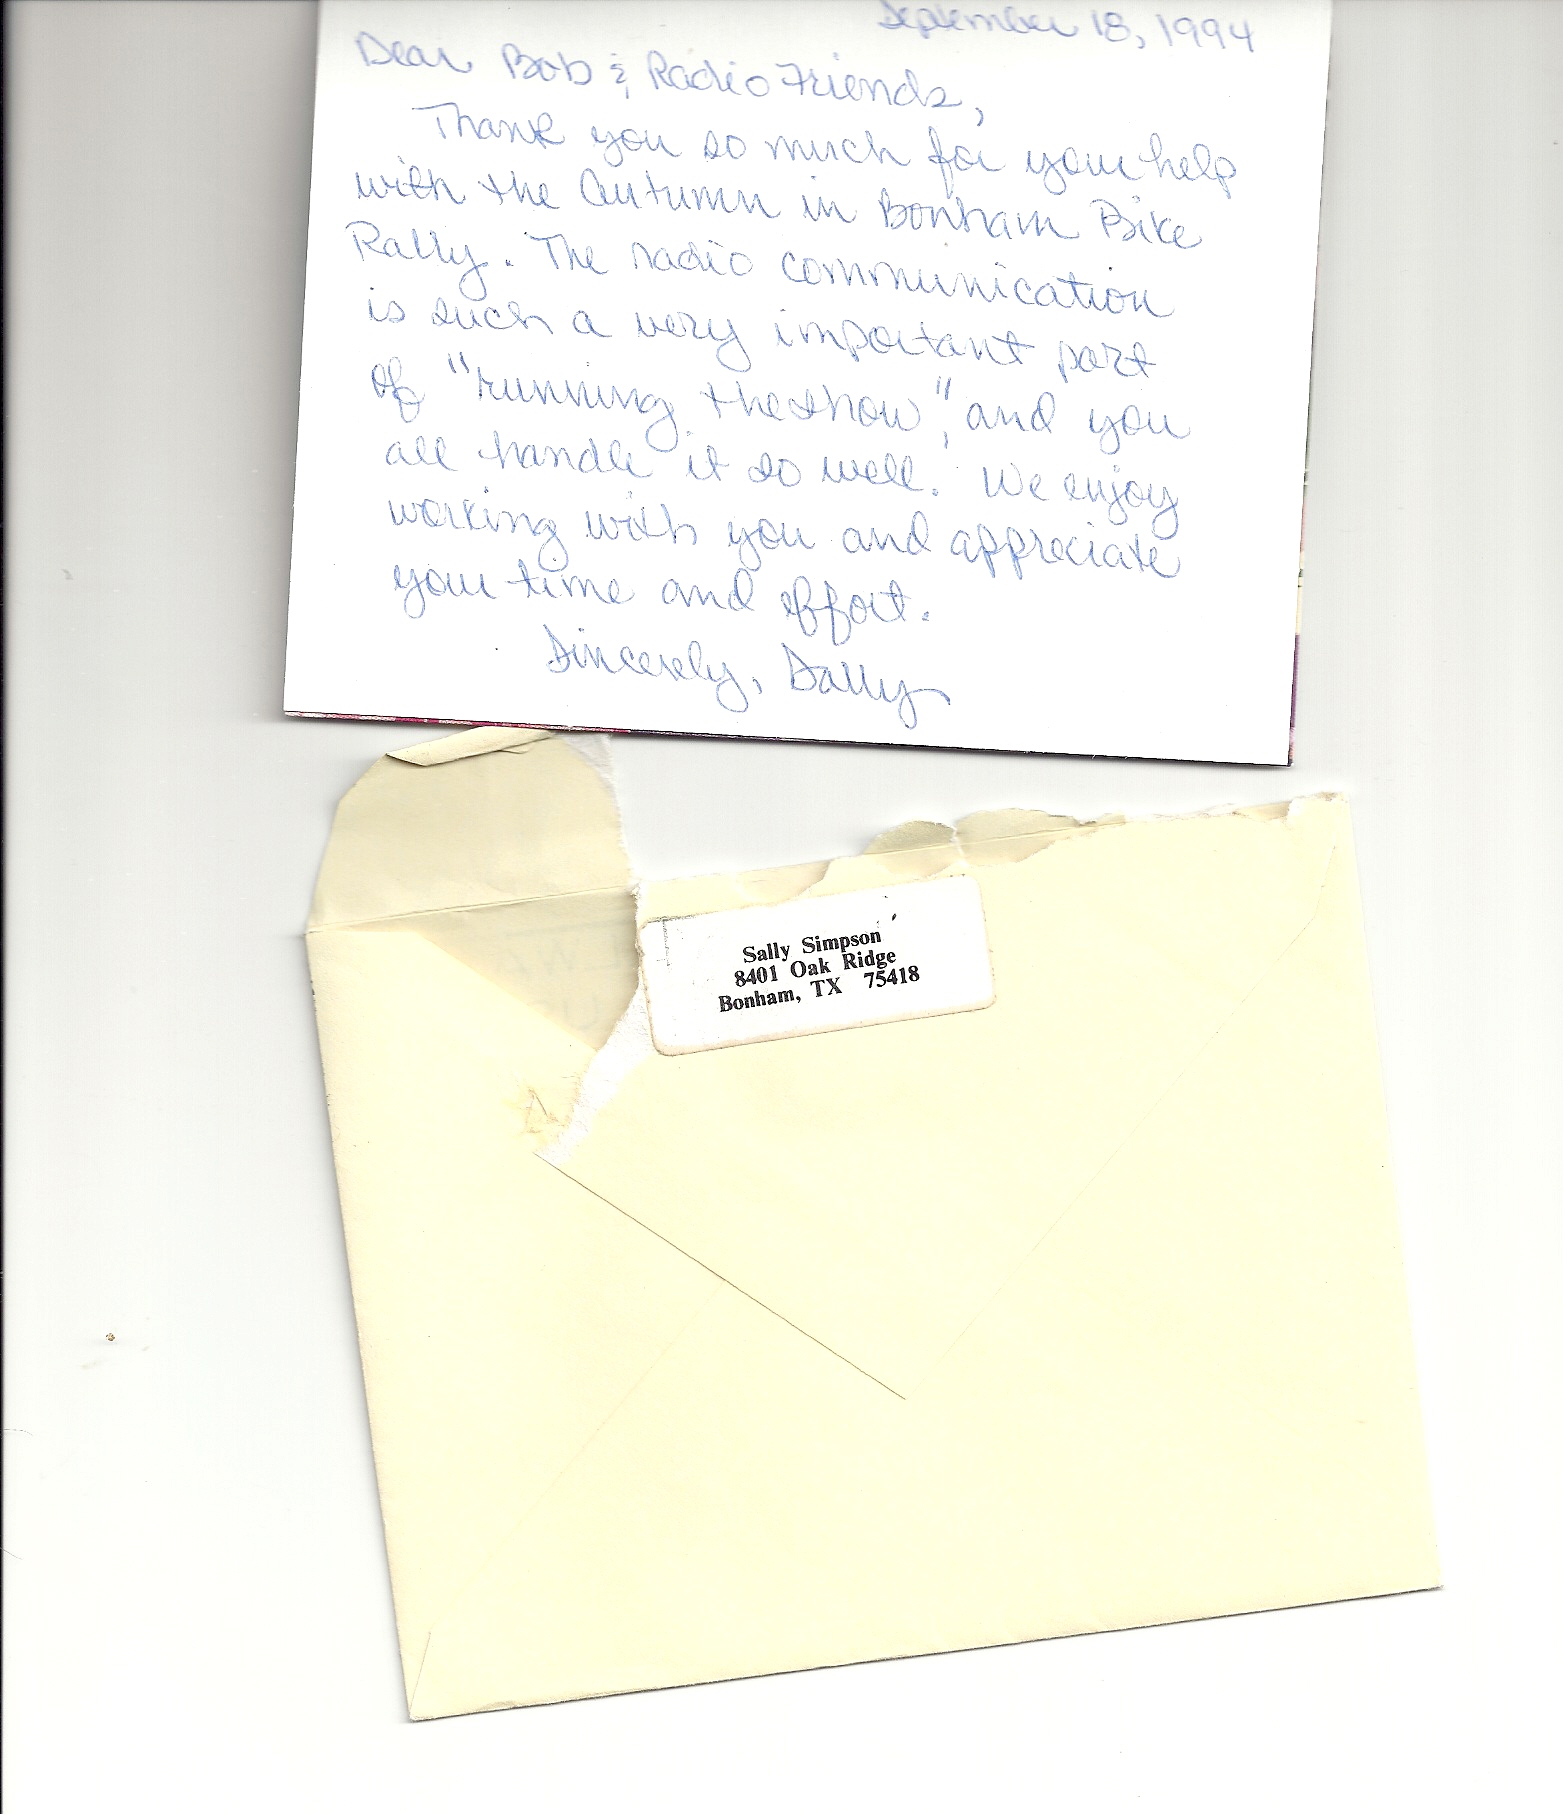 September 18, 1994
Dear Bob & Radio Friends,
Thank you so much for your help
with the Autumn in Bonham Bike
Rally. The radio communication
is such a very important part
of "running the show", and you
all handle it so well. We enjoy
working with you and appreciate
your time and effort.
Sincerely, Sally
Sally Simpson
8401 Oak Ridge
Bonham, TX 75418